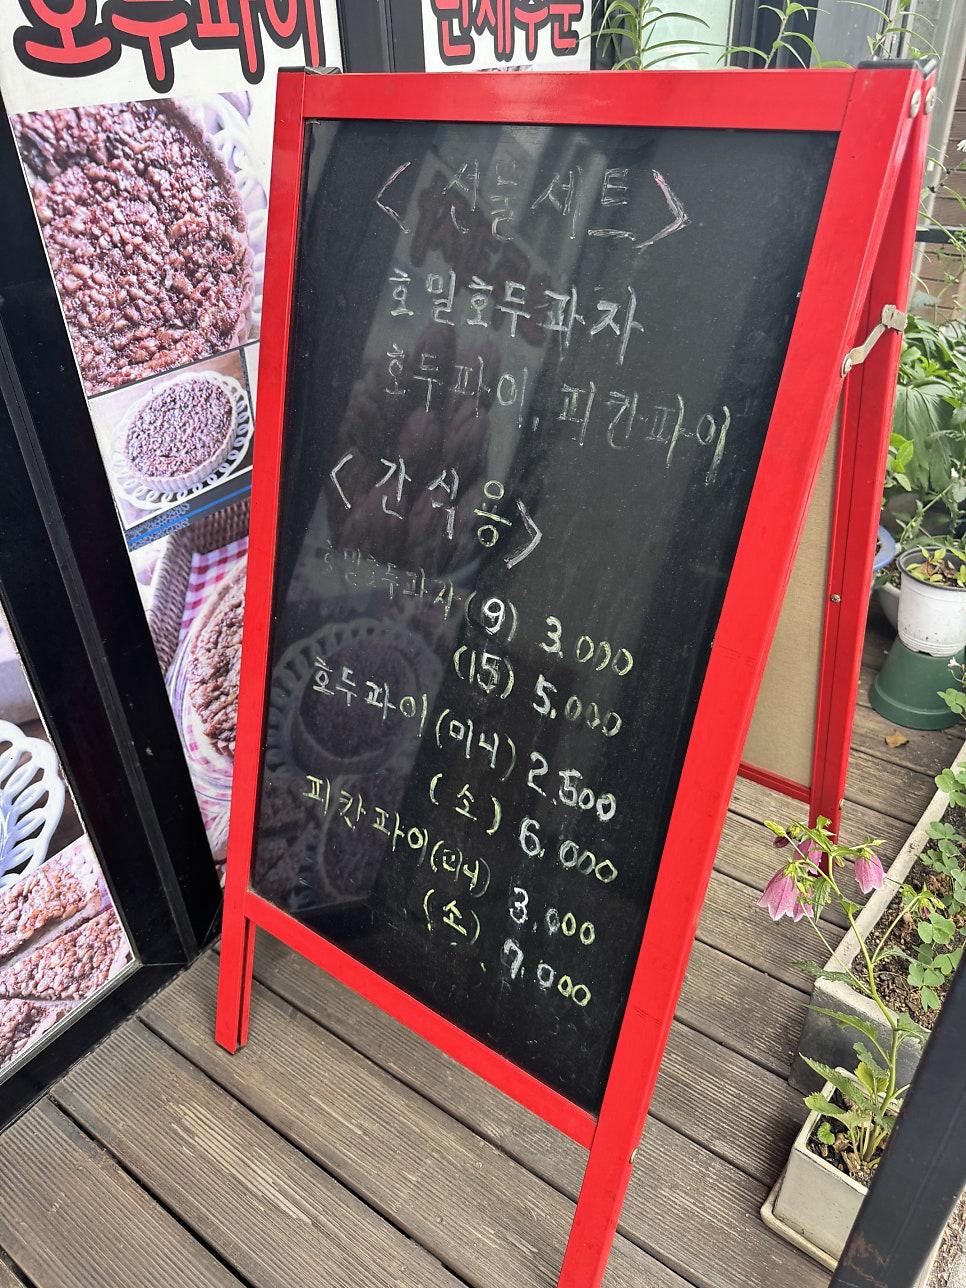 호두파이
단체주문
<선물세트>
호밀호두과자
호두파이, 피칸파이
<간식용>
호밀호두과자 (9) 3.000
(15) 5.000
호두파이 (미니) 2.500
(소) 6.000
피칸파이 (미니) 3.000
(소) 7.000